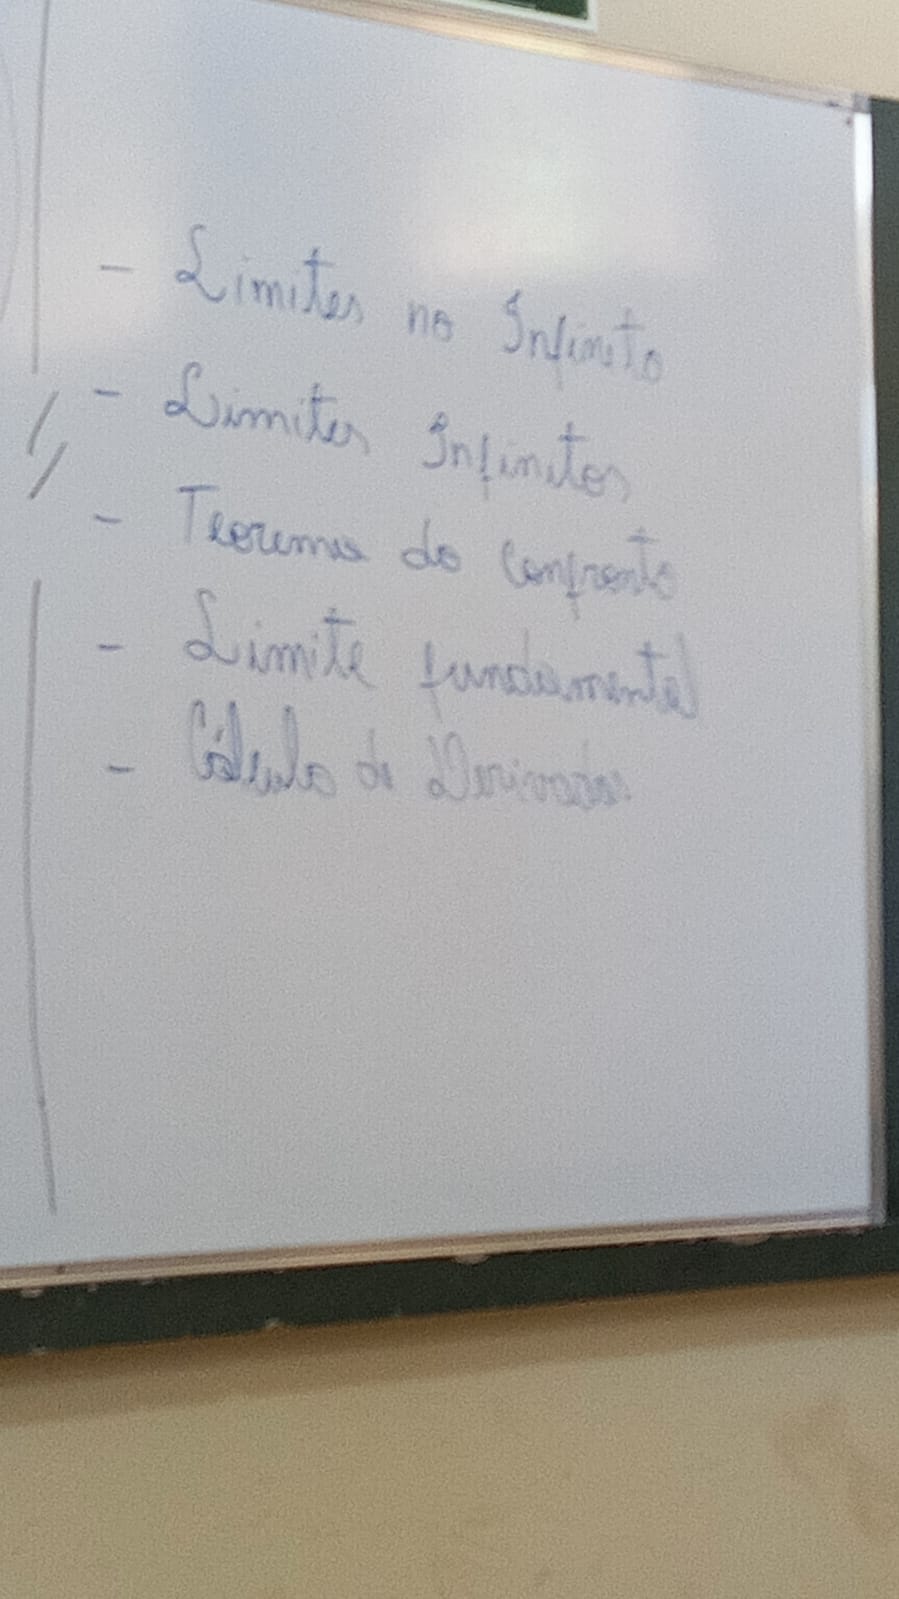 - Limites no Infinito
- Limites Infinitos
- Teorema do Confronto
- Limite fundamental
- Cálculo de Derivadas.